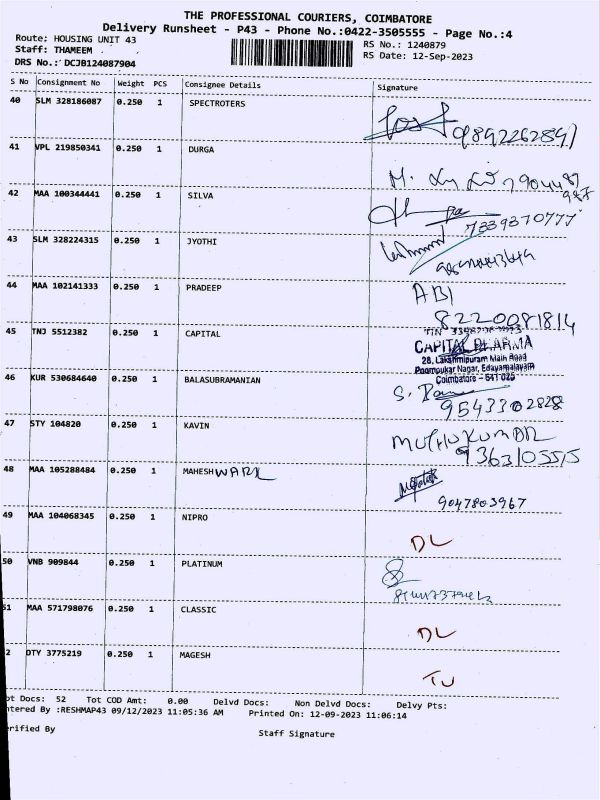 THE PROFESSIONAL COURIERS, COIMBATORE
Delivery Runsheet - P43 - Phone No.:0422-3505555 - Page No.:4
Route: HOUSING UNIT 43
RS No.: 1240879
Staff: THAMEEM
RS Date: 12-Sep-2023
DRS No.: DCJB124087904
S No Consignment No Weight PCS Consignee Details Signature
40 SLM 328186087 0.250 1 SPECTROTERS
41 VPL 219850341 0.250 1 DURGA
42 MAA 100344441 0.250 1 SILVA
7339370777
43 SLM 328224315 0.250 1 JYOTHI
44 MAA 102141333 0.250 1 PRADEEP
ABI
8220081814
45 TNJ 5512382 0.250 1 CAPITAL
CAPITAL PHARMA
28, Lakshmipuram Main Road
Poompukar Nagar, Edayarpalayam
Coimbatore - 641 025
46 KUR 530684640 0.250 1 BALASUBRAMANIAN
9543302828
47 STY 104820 0.250 1 KAVIN
MUTHUKUMAR
9363105515
48 MAA 105288484 0.250 1 MAHESHWARI
9047803967
49 MAA 104068345 0.250 1 NIPRO
DL
50 VNB 909844 0.250 1 PLATINUM
51 MAA 571798076 0.250 1 CLASSIC
DL
2 DTY 3775219 0.250 1 MAGESH
TU
ot Docs: 52 Tot COD Amt: 0.00 Delvd Docs: Non Delvd Docs: Delvy Pts:
ntered By :RESHMAP43 09/12/2023 11:05:36 AM Printed On: 12-09-2023 11:06:14
erified By Staff Signature